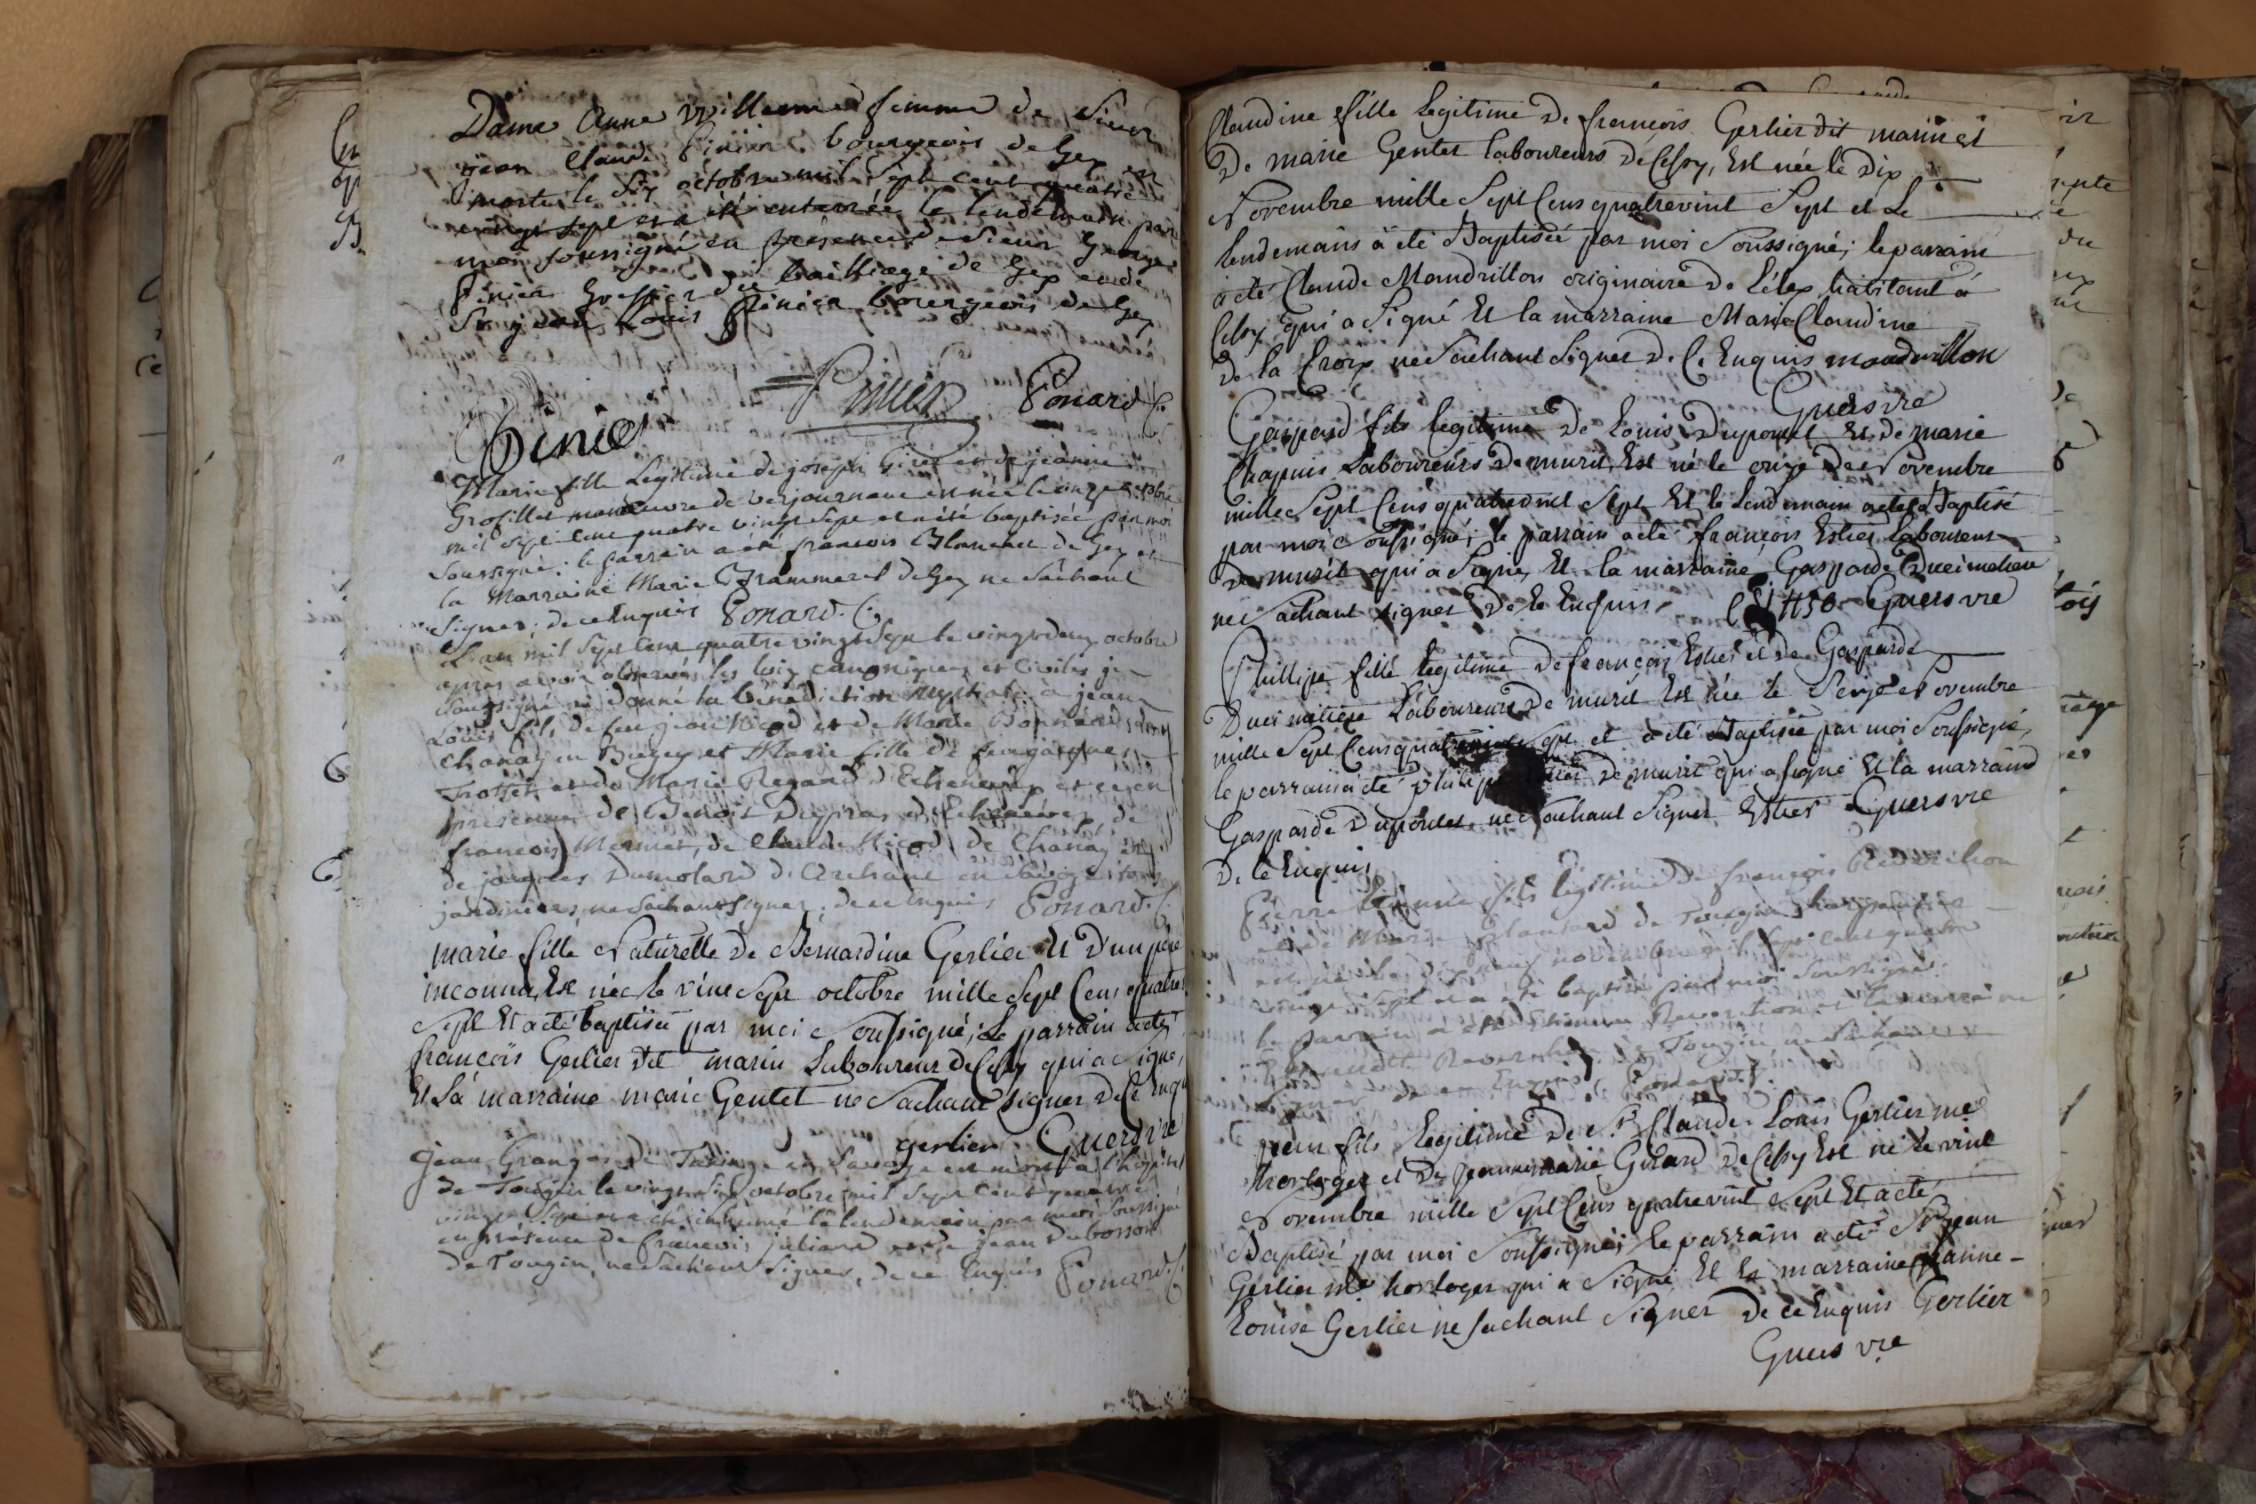 Dame Anne Willerme femme de Sieur
jean Claude Pinier bourgeois de Gex est
morte le dix octobre mil sept cent quatre
vingt sept et a été enterrée le lendemain par
moi soussigné en présence de Sieur
Pinier Greffier du bailliage de Gex et de
Sr jean Louis Pinier bourgeois de Gex
Pinier Ponard C.
Pinier
Marie fille Légitime de joseph Girod et de jeanne
Grosfillet manoeuvre de est née le onze
mil sept cent quatre vingt sept et a été baptisée par moi
soussigné; le parrain a été francois de Gex et
la Marraine Marie de Gex ne sachant
signer; de ce Enquis Ponard. C.
L'an mil sept cent quatre vingt sept le vingt deux octobre
apres avoir observé les loix canoniques et civiles je
soussigné ai donné la bénédiction nuptiale à jean
Louis fils de feu jean Nicod et de Marie
Chanay en Bugey et Marie fille de feu jacques
Trottet et de Marie Regard d'Echenevex et ce en
présence de Benoit Dupras d'Echenevex de
francois Mermet, de Claude Nicod de Chanay et
de jacques Dumolard
jardiniers ne sachant signer; de ce enquis Ponard. C.
marie fille Naturelle de Bernardine Gerlier Et D'un père
inconnu, Est née le vint sept octobre mille sept Cens quatre
Sept Et a été baptisée par moi Soussigné; Le parrain a été
francois Gerlier dit marin Laboureur de Cessy qui a Signé,
Et La marraine marie Gentet ne Sachant signer de Ce
gerlier Guers vre
jean Grange de en Savoye est mort à l'hopital
de Tougin le vingt octobre mil sept cent quatre
vingt sept et a été inhumé le lendemain par moi soussigné
en présence de francois juliard et de jean Dubosson
de Tougin, ne sachant signer, de ce Enquis Ponard. C.
Claudine fille Legitime De francois Gerlier dit marin et
De marie Gentet Laboureurs de Cessy, Est née le Dix
Novembre mille Sept Cens quatrevint Sept et Le
lendemain a été Baptisée par moi Soussigné; le parrain
a été Claude Mandrillon originaire De Lélex habitant à
Cessy qui a Signé Et la marraine Marie Claudine
De la Croix ne Sachant Signer De Ce Enquis mandrillon
Guers vre
Gaspard fils legitime De Louis Dupontet Et de marie
Chapuis Laboureurs De murit, Est né le onze De Novembre
mille Sept Cens quatrevint Sept Et le Lendemain a été Baptisé
par moi Soussigné; le parrain a été françois Estier Laboureur
De murit qui a Signé, Et la marraine Gasparde Ducimetiere
ne Sachant signer De Ce Enquis, Guers vre
Phillipe fille legitime De françois Estier et De Gasparde
Ducimetiere Laboureurs De murit Est née le Seize Novembre
mille Sept Cens quatrevint Sept et a été Baptisée par moi Soussigné,
le parrain a été philipe Estier De murit qui a signé Et la marraine
Gasparde Dupontet ne Sachant Signer Estier Guers vre
De Ce Enquis
Pierre Etienne fils légitime De françois Reverchon
et de Marie de Tougin charpentier
est né le dix neuf novembre mil sept cent quatre
vingt sept et a été baptisé par moi soussigné.
le parrain a été Etienne Reverchon et la marraine
Reverchon de Tougin ne sachant
signer de ce Enquis, Ponard C.
jean fils Legitime De Sr Claude Louis Gerlier me
horloger et De jeanne marie Girard De Cessy Est né le vint
Novembre mille Sept Cens quatrevint Sept Et a été
Baptisé par moi Soussigné; le parrain a été Sr jean
Gerlier me horloger qui a Signé Et la marraine jeanne -
Louise Gerlier ne sachant Signer De ce Enquis Gerlier
Guers vre